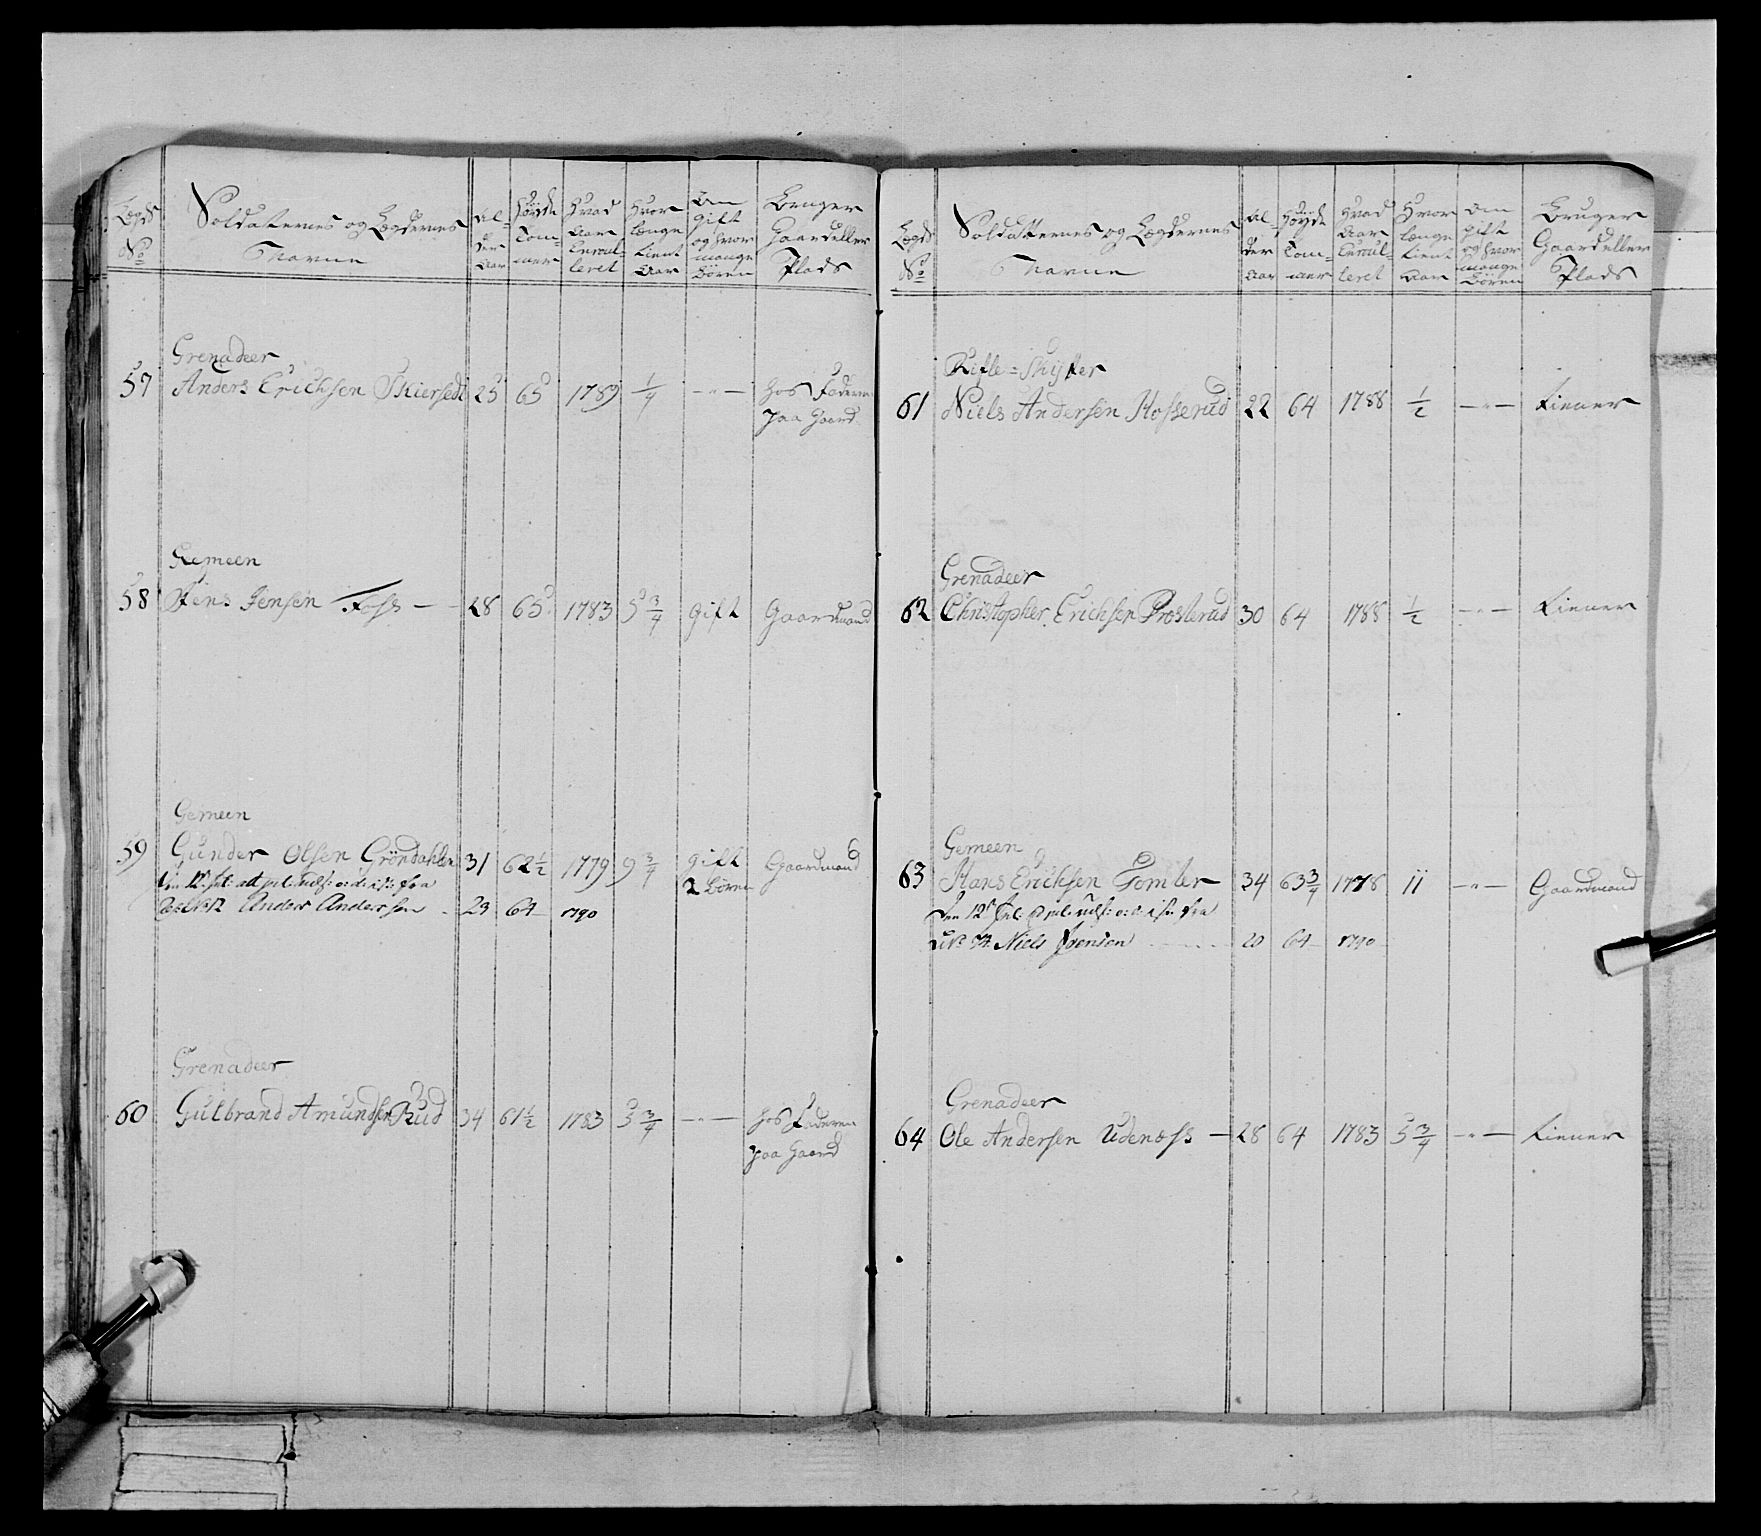 Lægds No
Soldatternes og Lægdernes Navne
Alder Aar
Høyde Tommer
Hvad Aar Enroulleret
Hvor længe tient Aar
Om gift og hvor mange Børen
Bruger Gaard eller Plads
Grenadeer
57 Anders Erichsen Skiersedt 25 65 1789 1/4 - " - hos Faderen
paa Gaard
Gemeen
58 Jens Jensen Foss - 28 65 1783 5 3/4 gift Gaardmand
Gemeen
59 Gunder Olsen Gröndahlen 31 62 1/2 1779 9 3/4 gift Gaardmand
2 Børen
Anders Andersen 23 64 1790
Grenadeer
60 Gulbrand Amundsen Rud 34 61 1/2 1783 5 3/4 - " - hos Faderen
paa Gaard
Lægds No
Soldatternes og Lægdernes Navne
Alder Aar
Høyde Tommer
Hvad Aar Enroulleret
Hvor længe tient Aar
Om gift og hvor mange Børen
Bruger Gaard eller Plads
Rifle = Skytter
61 Niels Andersen Hosserud 22 64 1788 1/2 - " - tiener
Grenadeer
62 Christopher Erichsen Prosterud 30 64 1788 1/2 - " - tiener
Gemeen
63 Hans Erichsen Tomler 34 63 3/4 1778 11 - " - Gaardmand
Niels Jensen 20 64 1790
Grenadeer
64 Ole Andersen Udenæss - 28 64 1783 5 3/4 - " - tiener